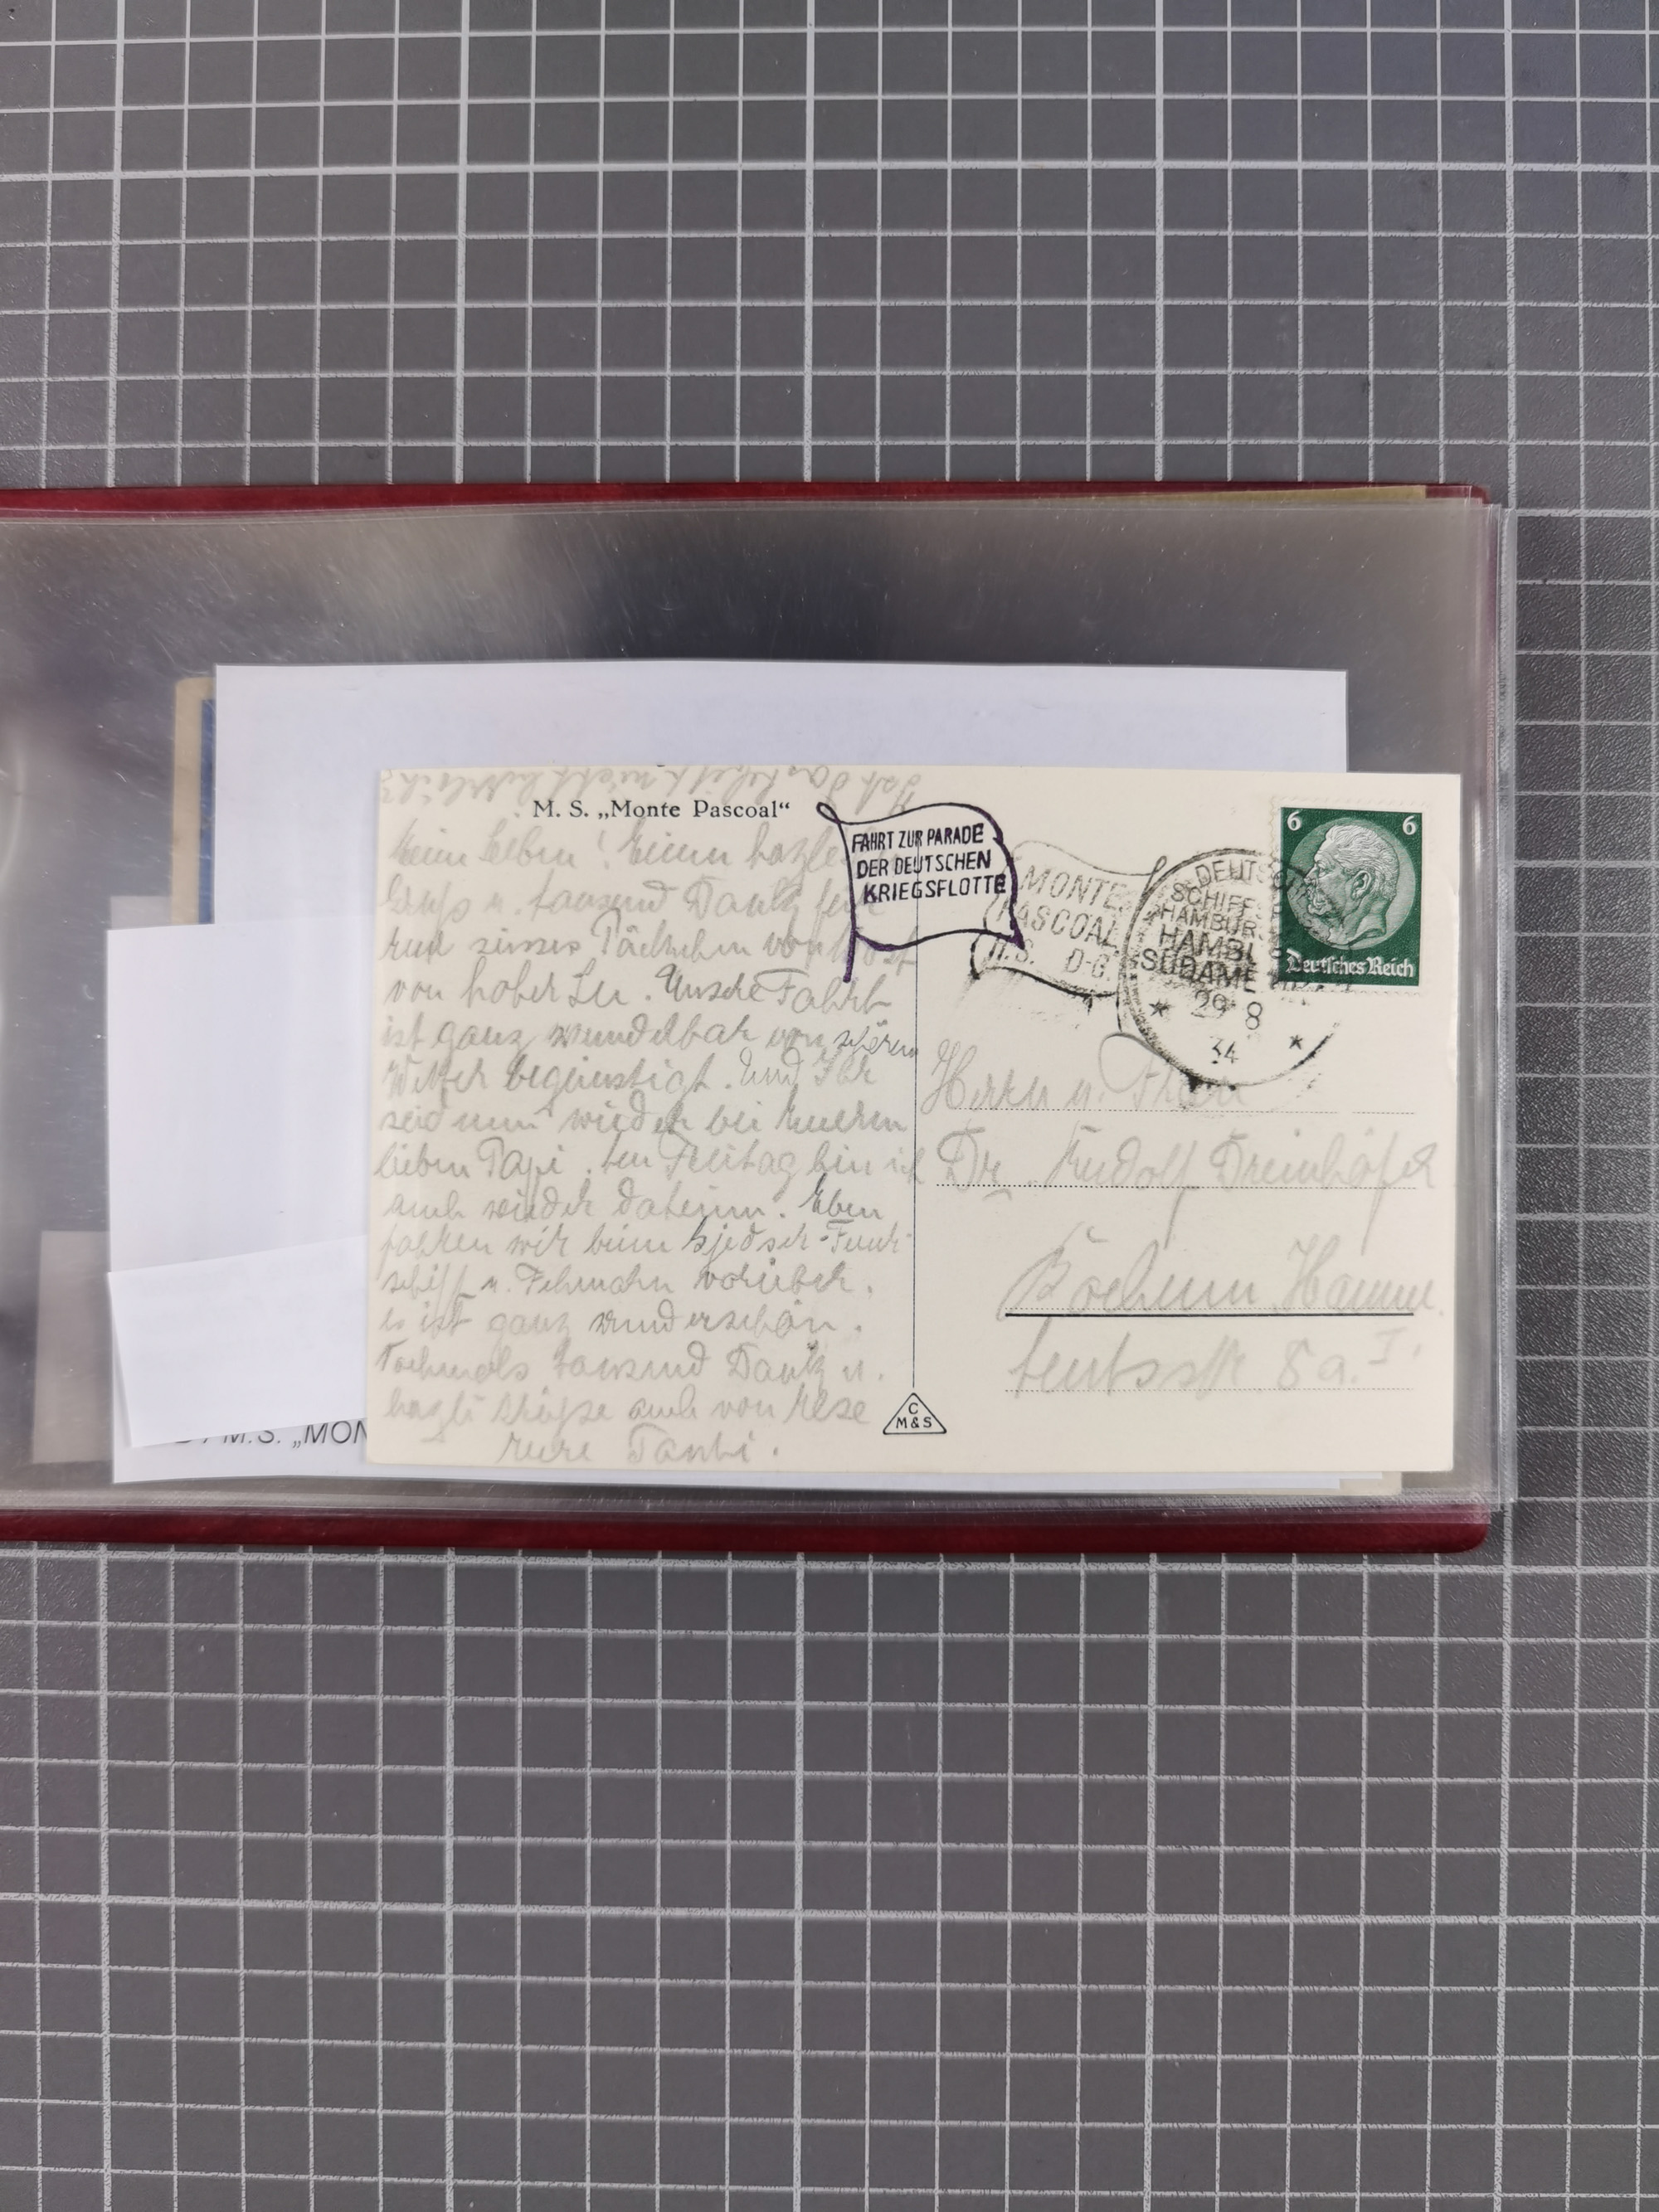 M. S. „Monte Pascoal“
FAHRT ZUR PARADE
DER DEUTSCHEN
KRIEGSFLOTTE
MONTE
PASCOAL
H.S. D-G.
DEUTSCHE
SCHIFFSP
HAMBURG
HAMBU
SÜDAME
29 8
34
6 6
Deutsches Reich
Meine Lieben! Einen herzl.
Gruß u. tausend Dank für
Euer süsses Päckchen
von hoher See. Unsere Fahrt
ist ganz wunderbar von schönem
Wetter begünstigt. Und Ihr
seid nun wieder bei Euerm
lieben Papi. Am Freitag bin ich
auch wieder daheim. Eben
fahren wir beim Gjedser-Feuer-
schiff u. Fehmarn vorüber.
Es ist ganz wunderschön.
Nochmals tausend Dank u.
herzl. Grüsse auch von Else
Eure Tanti.
Herrn u. Frau
Dr. Rudolf Dreinhöfer
Bochum Hamme.
8a. I.
C
M&S
M.S. „MON